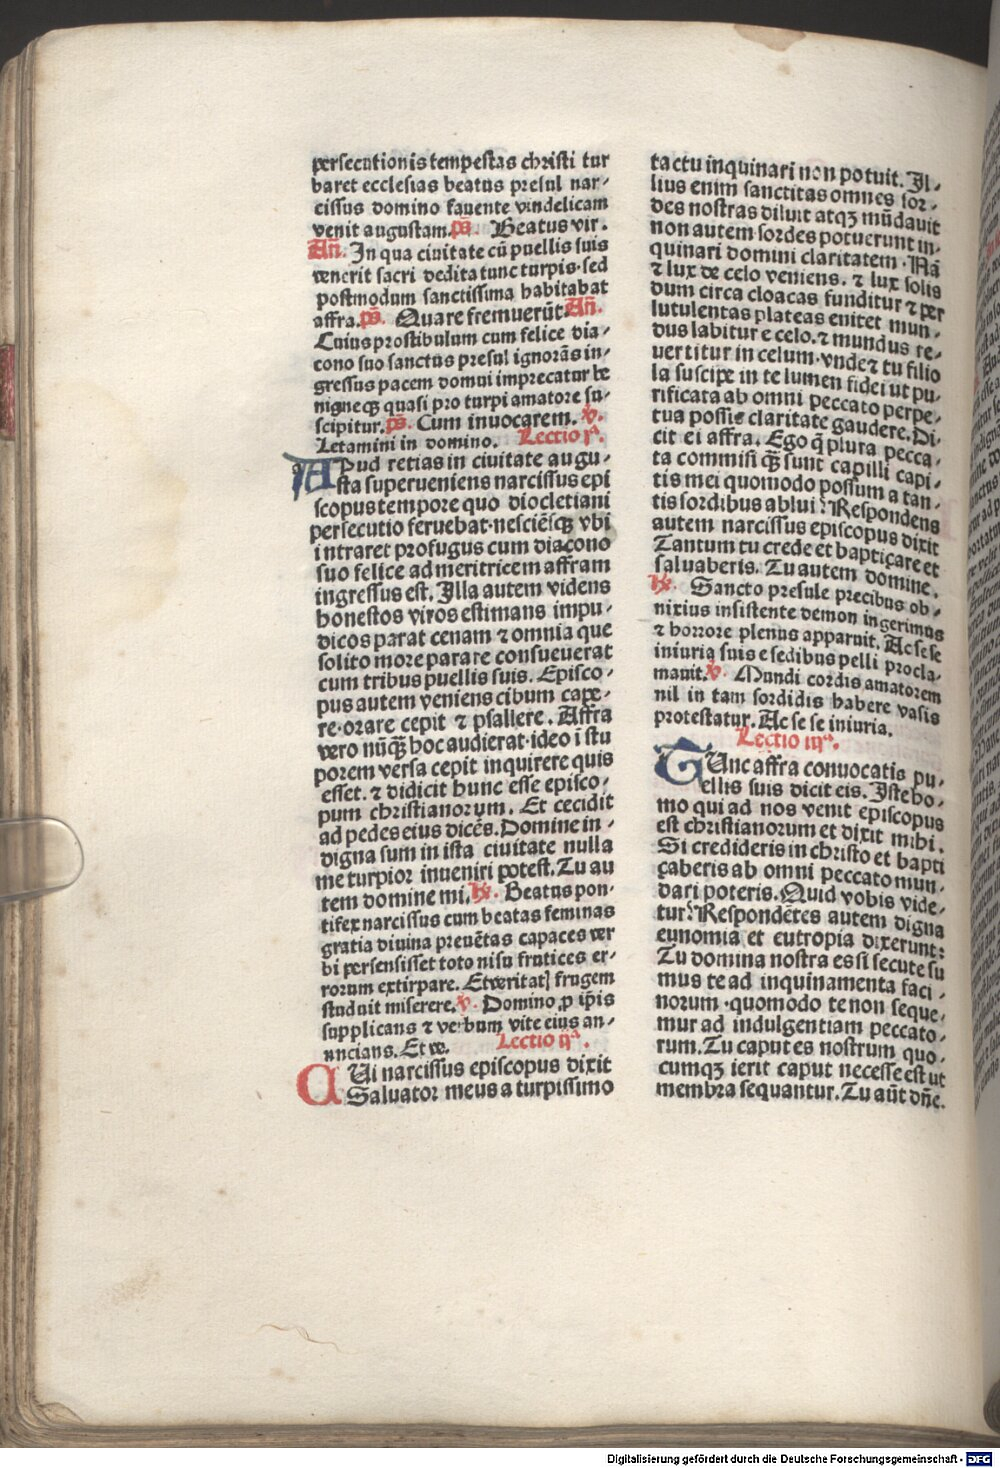 persecutionis tempestas christi tur
baret ecclesias beatus presul nar⸗
cissus domino fauente vindelicam
venit augustam. p̄s. Beatus vir.
Añ. In qua ciuitate cū puellis suis
venerit sacri dedita tunc turpis·sed
postmodum sanctissima habitabat
affra. p̄s. Quare fremuerūt Añ.
Cuius prostibulum cum felice dia⸗
cono suo sanctus presul ignorās in⸗
gressus pacem domui imprecatur be
nigneqꝫ quasi pro turpi amatore su⸗
scipitur. p̄s. Cum inuocarem. v̸.
Letamini in domino. Lectio jᵃ.
APud retias in ciuitate augu⸗
sta superueniens narcissus epi
scopus tempore quo diocletiani
persecutio feruebat·nesciēsqꝫ vbi
intraret profugus cum diacono
suo felice ad meritricem affram
ingressus est. Illa autem videns
honestos viros estimans impu⸗
dicos parat cenam ⁊ omnia que
solito more parare consueuerat
cum tribus puellis suis. Episco⸗
pus autem veniens cibum cape⸗
re·orare cepit ⁊ psallere. Affra
vero nūq̄ꝫ hoc audierat·ideo ī stu
porem versa cepit inquirere quis
esset. ⁊ didicit hunc esse episco⸗
pum christianorum. Et cecidit
ad pedes eius dicēs. Domine in⸗
digna sum in ista ciuitate nulla
me turpior inueniri potest. Tu au
tem domine mi. ℟. Beatus pon⸗
tifex narcissus cum beatas feminas
gratia diuina preuētas capaces ver
bi persensisset toto nisu frutices er⸗
rorum extirpare. Et veritatꝭ frugem
studuit miserere. v̸. Domino ꝓ ip̄is
supplicans ⁊ verbum vite eius an⸗
nuncians. Et ve. Lectio ijᵃ.
CUi narcissus episcopus dixit
Saluator meus a turpissimo
tactu inquinari non potuit. Il⸗
lius enim sanctitas omnes sor⸗
des nostras diluit atqꝫ mūdauit
non autem sordes potuerunt in⸗
quinari domini claritatem·Nā
⁊ lux de celo veniens. ⁊ lux solis
dum circa cloacas funditur ⁊ per
lutulentas plateas enitet mun⸗
dus labitur e celo. ⁊ mundus re⸗
uertitur in celum·vnde ⁊ tu filio
la suscipe in te lumen fidei ut pu⸗
rificata ab omni peccato perpe⸗
tua possis claritate gaudere. Di⸗
cit ei affra. Ego q̄ plura pecca⸗
ta commisi q̄ꝫ sunt capilli capi⸗
tis mei quomodo possum a tan⸗
tis sordibus ablui? Respondens
autem narcissus episcopus dixit
Tantum tu crede et bapticare et
saluaberis. Tu autem domine.
℟. Sancto presule precibus ob⸗
nixius insistente demon ingerimus
⁊ horrore plenus apparuit. Ac se se
iniuria suis e sedibus pelli procla⸗
mauit. v̸. Mundi cordis amatorem
nil in tam sordidis habere vasis
protestatur. Ac se se iniuria.
Lectio iijᵃ.
TUnc affra conuocatis pu⸗
ellis suis dicit eis. Iste ho⸗
mo qui ad nos venit episcopus
est christianorum et dixit mihi.
Si credideris in christo et bapti
çaberis ab omni peccato mun⸗
dari poteris. Quid vobis vide⸗
tur? Respondētes autem digna
eunomia et eutropia dixerunt:
Tu domina nostra es si secute su
mus te ad inquinamenta faci⸗
norum·quomodo te non seque⸗
mur ad indulgentiam peccato⸗
rum. Tu caput es nostrum quo⸗
cumqꝫ ierit caput necesse est ut
membra sequantur. Tu aūt dn̄e.
Digitalisierung gefördert durch die Deutsche Forschungsgemeinschaft - DFG